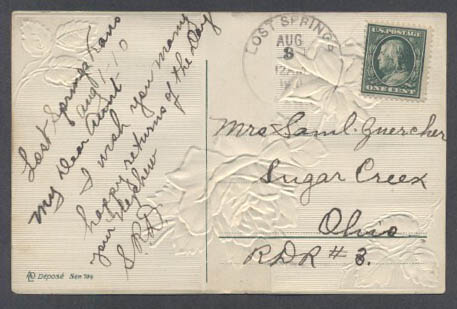 Lost Springs Kans
Aug 7-10
My Dear Aunt
I wish you many
happy returns of the Day
your Nephew
S.R.D.
LOST SPRINGS
AUG
8
12
U.S.POSTAGE
ONE CENT
Mrs Saml. Zuercher
Sugar Creek
Ohio
RDR # 3.
Déposé Ser 794